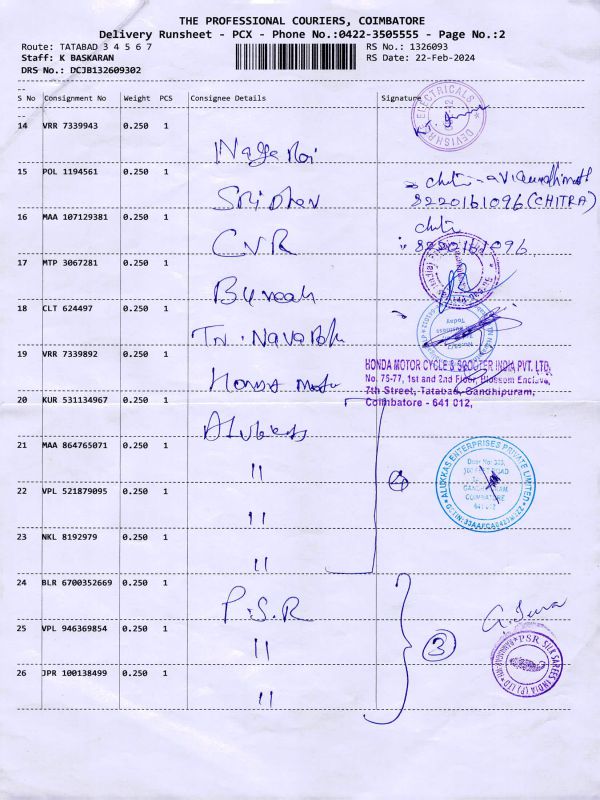 THE PROFESSIONAL COURIERS, COIMBATORE
Delivery Runsheet - PCX - Phone No.:0422-3505555 - Page No.:2
Route: TATABAD 3 4 5 6 7
RS No.: 1326093
Staff: K BASKARAN
RS Date: 22-Feb-2024
DRS No.: DCJB132609302
S No Consignment No Weight PCS Consignee Details Signature
ELECTRICALS
14 VRR 7339943 0.250 1
15 POL 1194561 0.250 1
Sridhar
8220161096 (CHITRA)
16 MAA 107129381 0.250 1
CVR
8220161096
17 MTP 3067281 0.250 1
Bureau
18 CLT 624497 0.250 1
TN.
19 VRR 7339892 0.250 1
Honda
HONDA MOTOR CYCLE & SCOOTER INDIA PVT. LTD.
No. 75-77, 1st and 2nd Floor, Blossom Enclave,
7th Street, Tatabad, Gandhipuram,
Coimbatore - 641 012,
20 KUR 531134967 0.250 1
21 MAA 864765071 0.250 1
"
4
ALUKKAS ENTERPRISES PRIVATE LIMITED
COIMBATORE
22 VPL 521879095 0.250 1
"
23 NKL 8192979 0.250 1
"
24 BLR 6700352669 0.250 1
P.S.R
25 VPL 946369854 0.250 1
"
3
PSR SILK SAREES INDIA (P) LTD
26 JPR 100138499 0.250 1
"